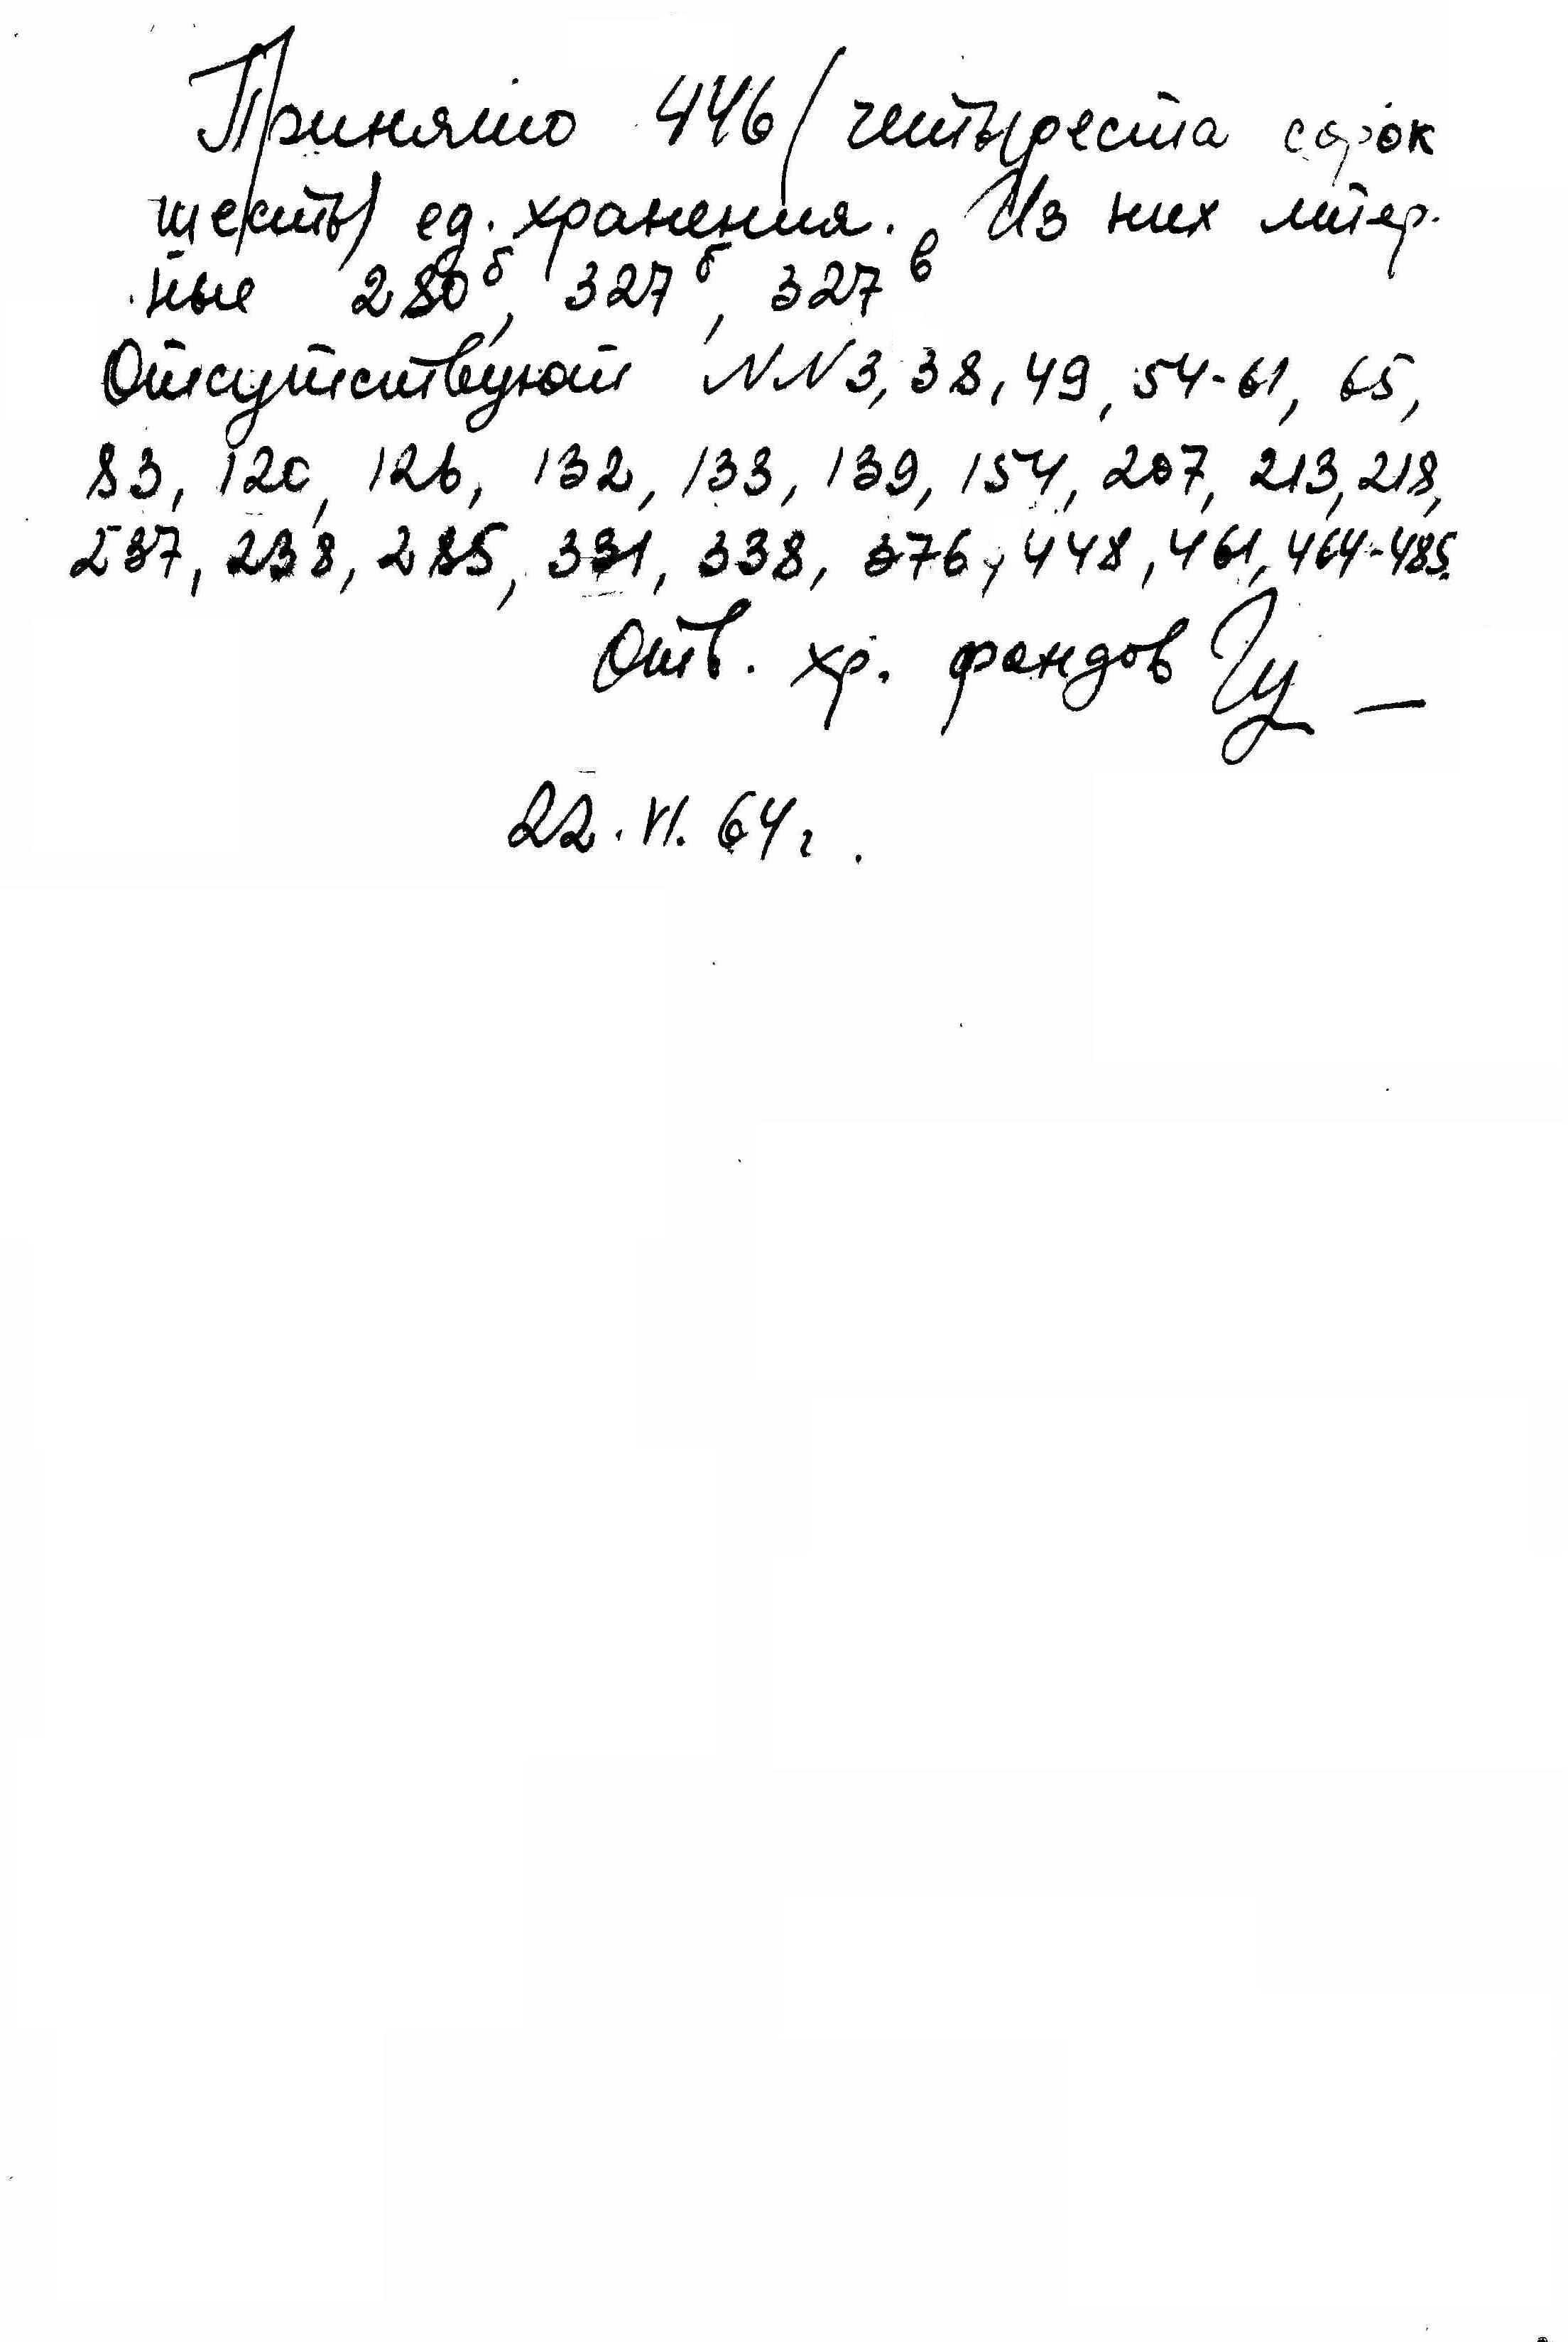 Принято 446 (четыреста сорок
шесть) ед. хранения. Из них литер-
ные 280б, 327б, 327в
Отсутствуют NN 3, 38, 49, 54-61, 65,
83, 120, 126, 132, 133, 139, 154, 207, 213, 218,
237, 238, 285, 331, 338, 376, 448, 461, 464-485.
Отв. хр. фондов
22.VI.64г.